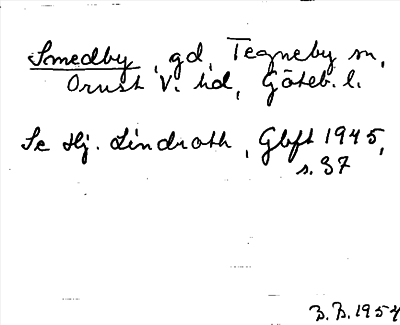 Smedby, gd, Tegneby sn,
Orust V. hd, Göteb. l.
Se Hj. Lindroth, Gbft 1945,
s. 37
B.B. 1954